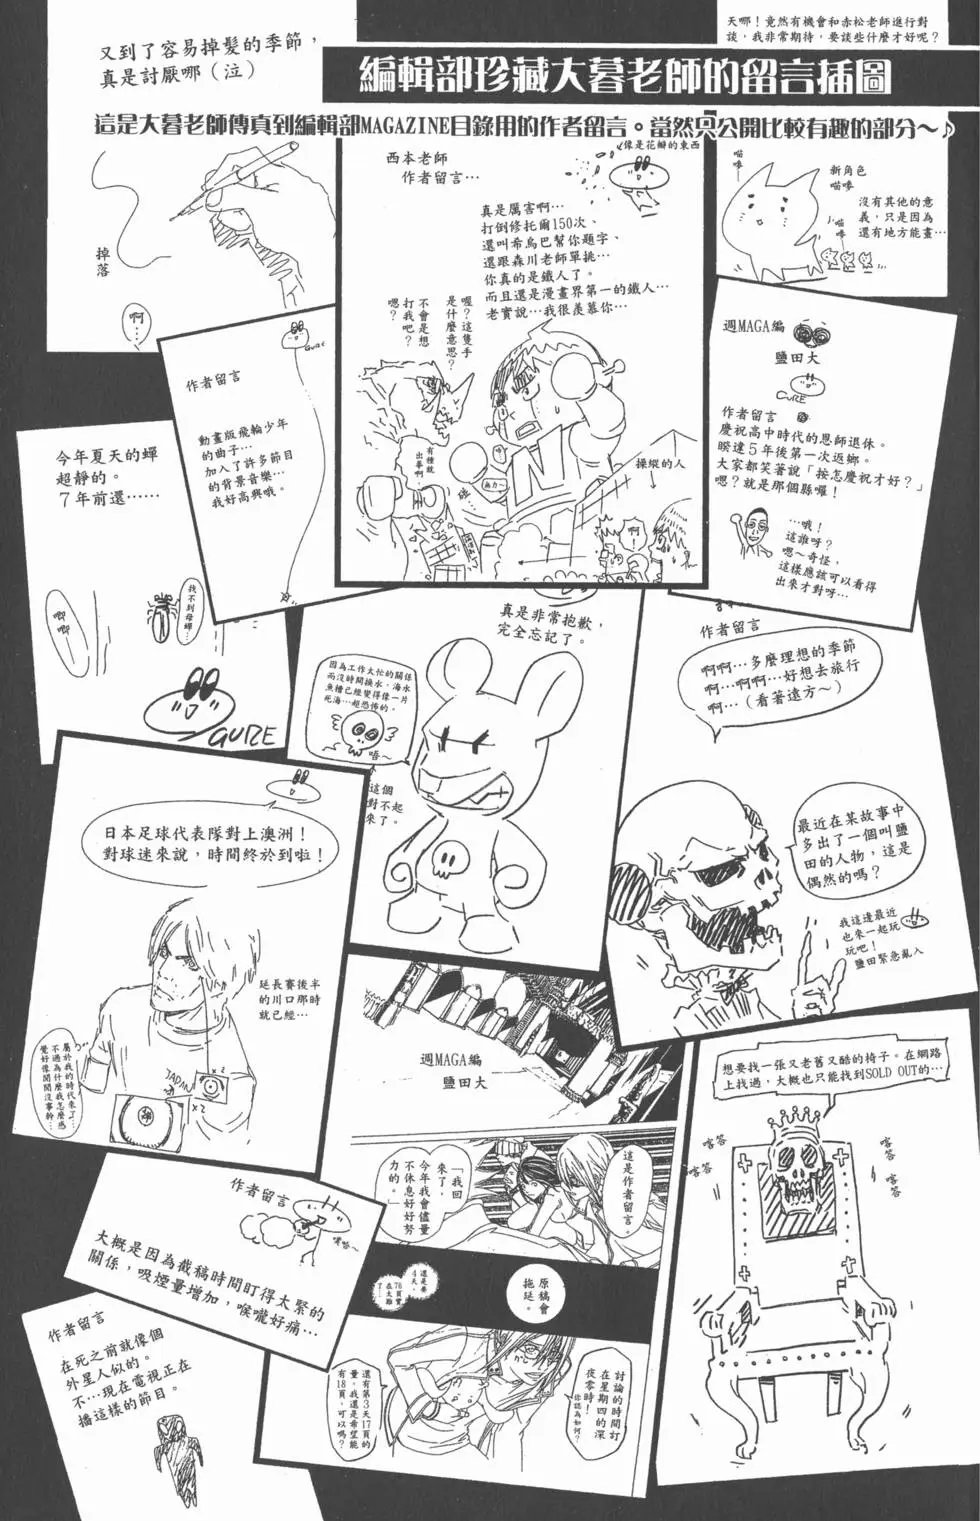 又到了容易掉髮的季節，
真是討厭哪（泣）
天哪！竟然有機會和赤松老師進行對
談，我非常期待，要談些什麼才好呢？
編輯部珍藏大暮老師的留言插圖
這是大暮老師傳真到編輯部MAGAZINE目錄用的作者留言。當然只公開比較有趣的部分～♪
掉落
啊…
西本老師
作者留言…
像是花瓣的東西
真是厲害啊…
打倒修托爾150次、
還叫希烏巴幫你題字、
還跟森川老師單挑…
你真的是鐵人了。
而且還是漫畫界第一的鐵人…
老實說…我很羨慕你…
喔？這隻手
是什麼意思？
不會是想
打我吧？
嗯？
有種就
出拳啊
無力～
操縱的人
啊
喵嗲
新角色
喵嗲
喵嗲
沒有其他的意
義，只是因為
還有地方能畫…
作者留言
GURE
動畫版飛輪少年
的曲子…
加入了許多節目
的背景音樂…
我好高興哦。
週MAGA編
鹽田大
GURE
作者留言
慶祝高中時代的恩師退休。
睽違5年後第一次返鄉。
大家都笑著說「按怎慶祝才好？」
嗯？就是那個縣囉！
…哦！
這誰呀？
嗯～奇怪，
這樣應該可以看得
出來才對呀…
今年夏天的蟬
超靜的。
7年前還……
唧唧
找不到母蟬…
GURE
真是非常抱歉，
完全忘記了。
因為工作太忙的關係
而沒時間換水，海水
魚槽已經變得像一片
死海…超恐怖的。
唔～
這個
對不起
來了。
作者留言
啊啊…多麼理想的季節
啊…啊啊…好想去旅行
啊…（看著遠方～）
最近在某故事中
多出了一個叫鹽
田的人物，這是
偶然的嗎？
我這邊最近
也來一起玩
玩吧！
鹽田緊急亂入
日本足球代表隊對上澳洲！
對球迷來說，時間終於到啦！
延長賽後半
的川口那時
就已經…
屬於我的時代來了…
不過為什麼我怎麼感
覺好像閒閒沒事幹…
JAPAN
×2
×2
週MAGA編
鹽田大
這是作者留言。
「我回
來了，
今年我會儘量
不休息好好努
力的。」
原稿會
拖延。
還是有
4天，
76頁實
在太難
了…
討論的時間訂
在星期四的深
夜零時！
你認為如何？
還有第3天17頁的
量，我還是希望能
有18頁，可以嗎？
想要找一張又老舊又酷的椅子。在網路
上找過，大概也只能找到SOLD OUT的…
喀答
喀答
喀答
喀答
作者留言
噗哈～
大概是因為截稿時間盯得太緊的
關係，吸煙量增加，喉嚨好痛…
作者留言
在死之前就像個
外星人似的。
不…現在電視正在
播這樣的節目。